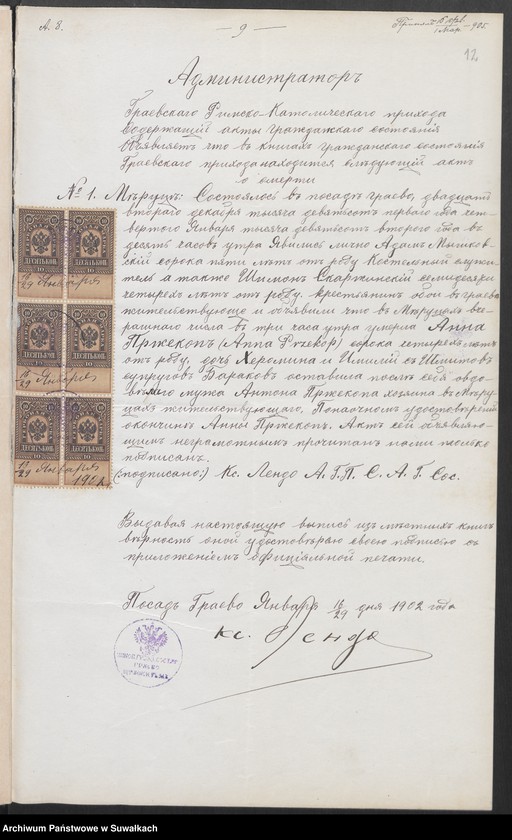 А. 8.
— 9 —
905.
12.
Администраторъ
Граевскаго Римско-Католическаго прихода
Содержащий акты гражданскаго состоянія
Объявляетъ что въ книгахъ гражданскаго состоянія
Граевскаго прихода находится слѣдующій актъ
о смерти
№ 1. Мѣруцъ: Состоялось въ посадѣ Граево, двадцать
втораго декабря тысяча девятсотъ перваго года чет-
вертого Января тысяча девятсотъ второго года въ
десять часовъ утра Явились лично Адамъ Мышков-
скій сорока пяти лѣтъ отъ роду Костельный служи-
тель а также Шимонъ Скаржинскій семидесяти
четырехъ лѣтъ отъ роду, крестьянинъ обои въ Граево
жительствующе и объявили что въ Мѣруцахъ вче-
рашнаго числа въ три часа утра умерла Анна
Пржекопъ (Anna Przekop) сорока четырехъ лѣтъ
отъ роду, дочь Херолима и Эмиліи съ
супруговъ Бараковъ оставила послѣ себя овдо-
вѣлаго мужа Антона Пржекопа хозяина въ Мѣру-
цахъ жительствующаго. По наочномъ удостовѣреніи
кончинѣ Анны Пржекопъ. Актъ сей объявляю-
щимъ неграмотнымъ прочитанъ нами только
подписанъ.
(подписано:) Кс. Лендо А. Г. П. С. А. Г. Сос.
Выдавая настоящую выпись изъ мѣстныхъ книгъ
вѣрность оной удостовѣряю своею подписью съ
приложеніемъ официяльной печати.
Посадъ Граево Января 16/29 дня 1902 года
кс. Лендо
ДЕСЯТЬ КОП.
10
ДЕСЯТЬ КОП.
10
16/29 Января
ДЕСЯТЬ КОП.
10
ДЕСЯТЬ КОП.
10
16/29 Января
ДЕСЯТЬ КОП.
10
ДЕСЯТЬ КОП.
10
16/29 Января
1902
Archiwum Państwowe w Suwałkach